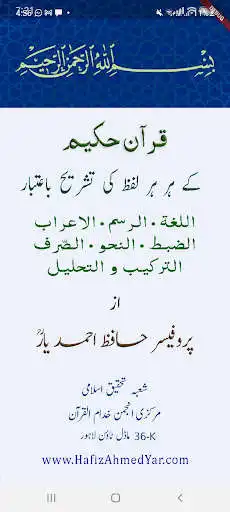 بِسْمِ اللهِ الرَّحْمٰنِ الرَّحِيْمِ
قرآن حکیم
کے ہر ہر لفظ کی تشریح باعتبار
اللغة ۰ الرسم ۰ الاعراب
الضبط ۰ النحو ۰ الصّرف
التركيب و التحليل
از
پروفیسر حافظ احمد یارؒ
شعبہ تحقیق اسلامی
مرکزی انجمن خدام القرآن
36-K ماڈل ٹاؤن لاہور
www.HafizAhmedYar.com